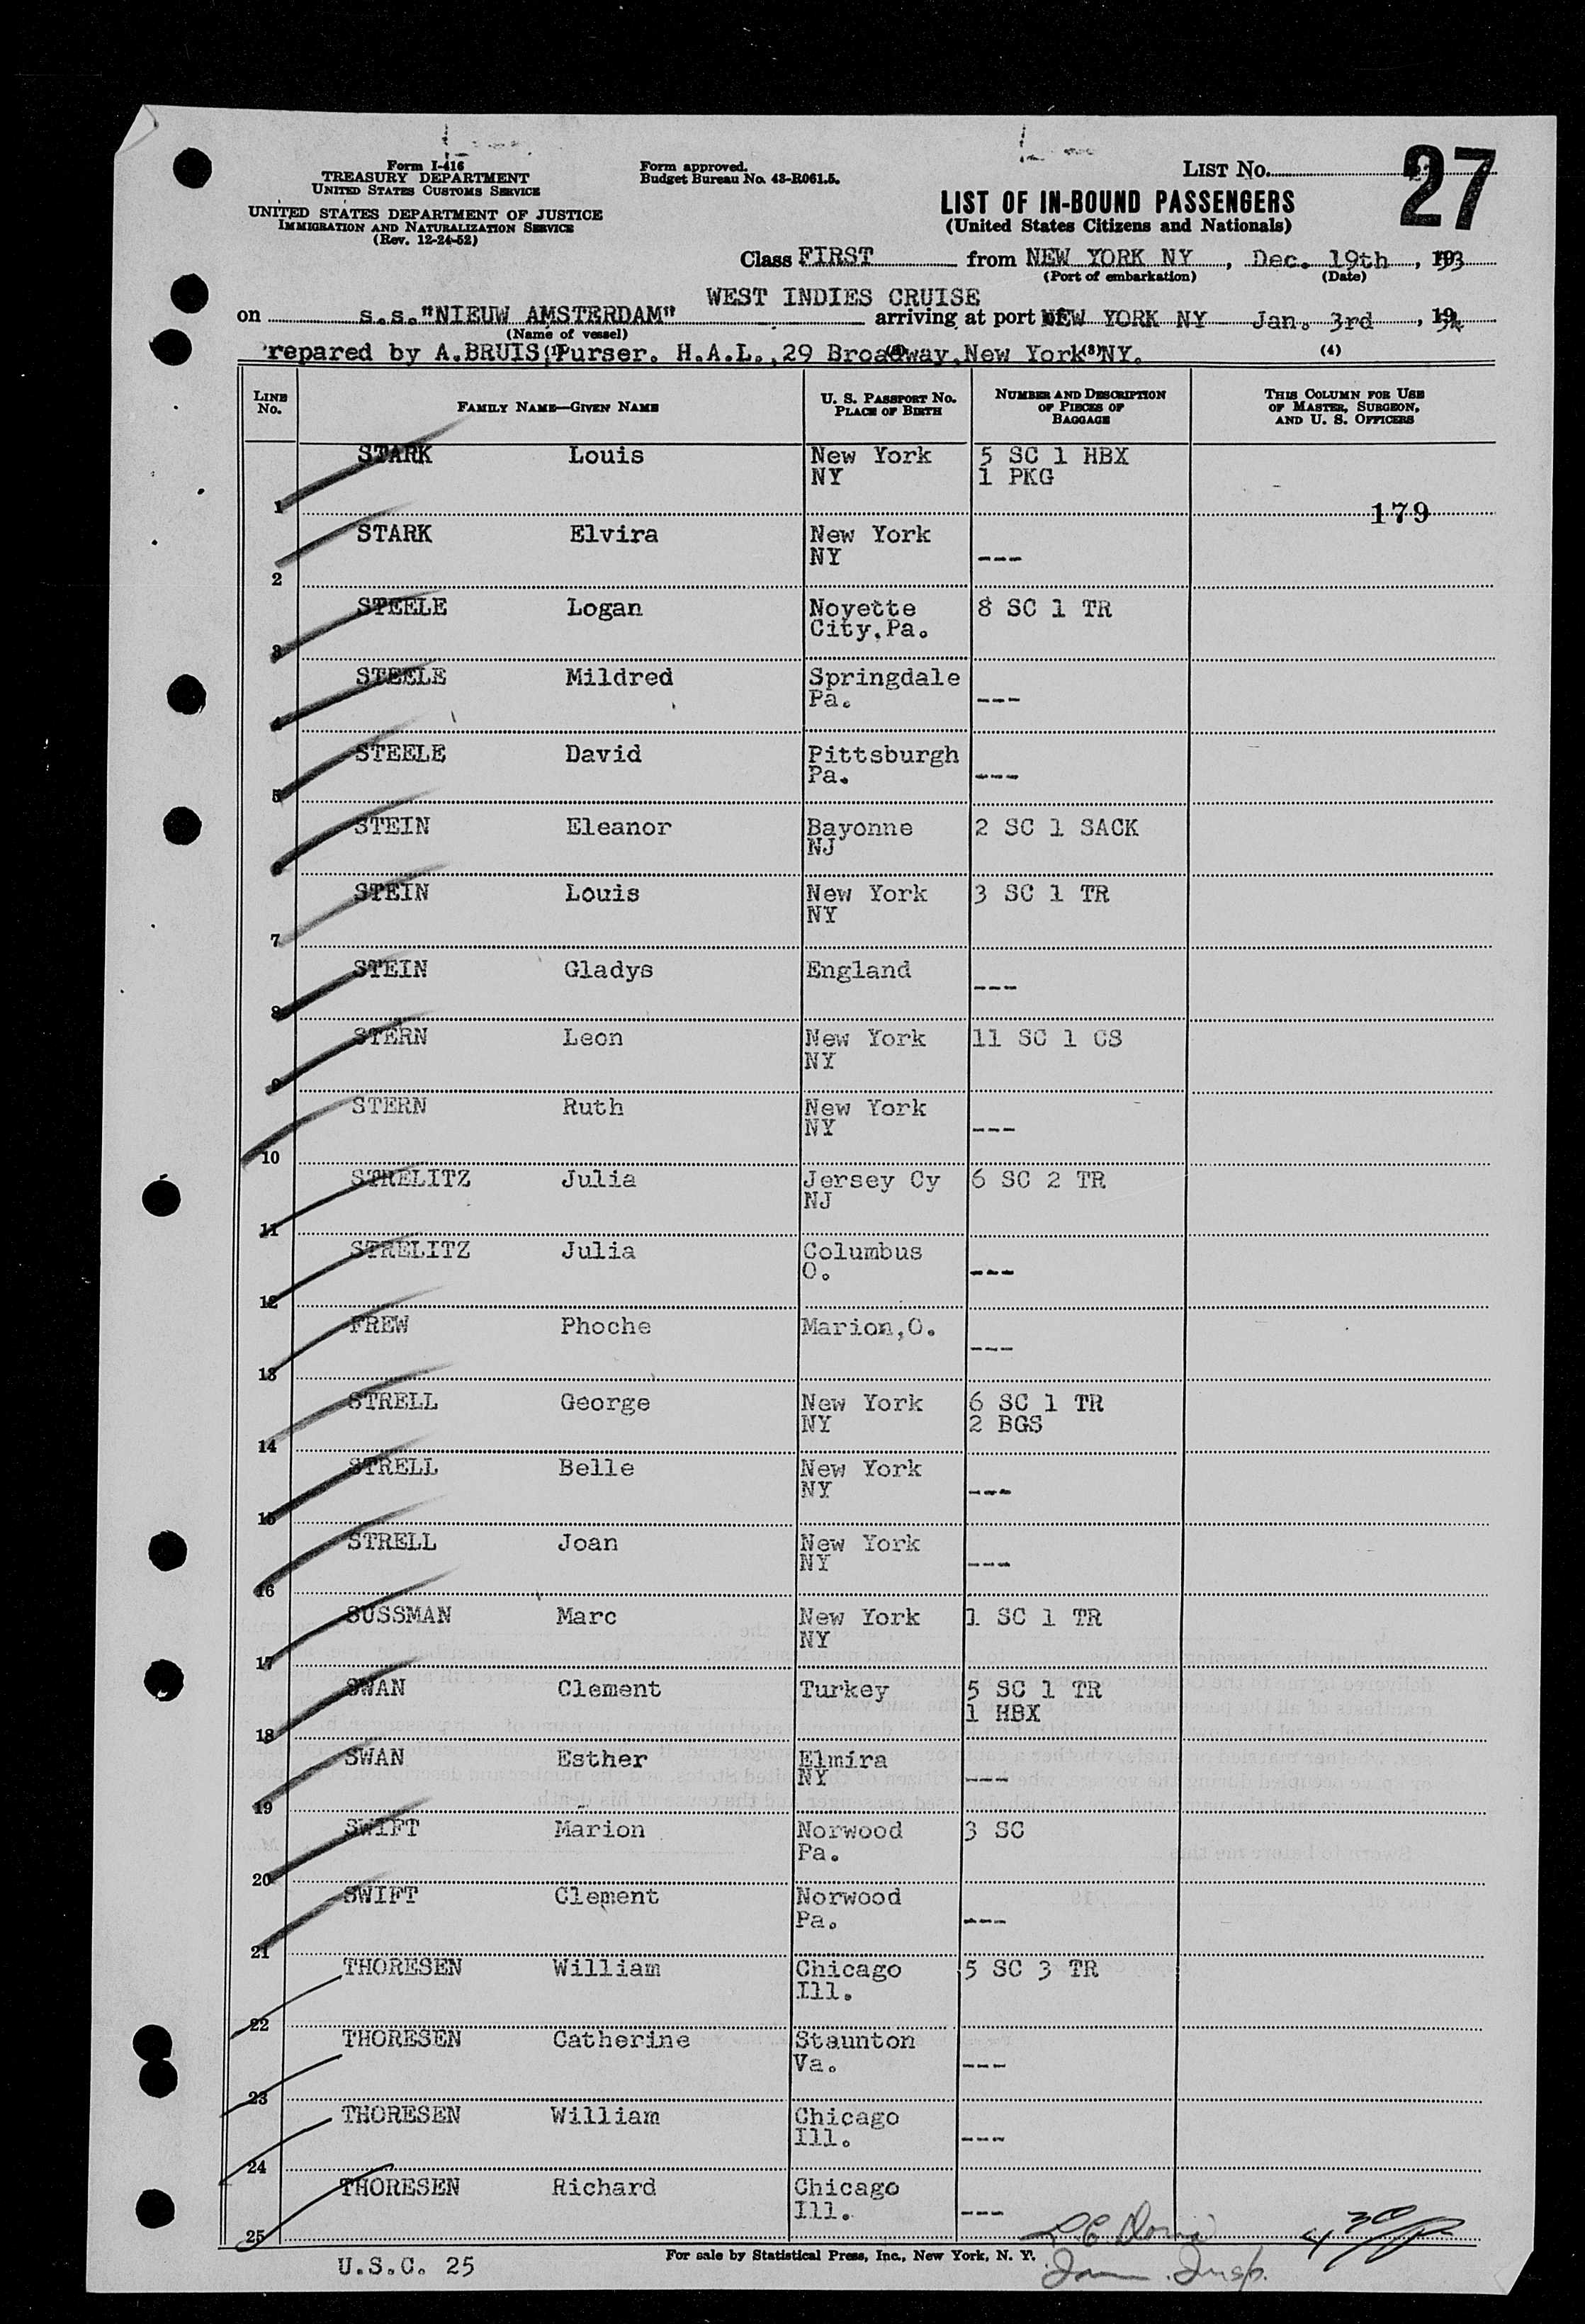 Form I-416
TREASURY DEPARTMENT
UNITED STATES CUSTOMS SERVICE
UNITED STATES DEPARTMENT OF JUSTICE
IMMIGRATION AND NATURALIZATION SERVICE
(Rev. 12-24-52)
Form approved.
Budget Bureau No. 43-R061.5.
LIST No. 27
LIST OF IN-BOUND PASSENGERS
(United States Citizens and Nationals)
Class FIRST from NEW YORK NY, Dec. 19th, 1953
(Port of embarkation) (Date)
WEST INDIES CRUISE
on s.s."NIEUW AMSTERDAM" arriving at port of NEW YORK NY Jan. 3rd, 1954
(Name of vessel)
repared by A.BRUIS, Purser. H.A.L.,29 Broadway,New York NY.
(1) (2) (3) (4)
LINE No. FAMILY NAME—GIVEN NAME U. S. PASSPORT No. PLACE OF BIRTH NUMBER AND DESCRIPTION OF PIECES OF BAGGAGE THIS COLUMN FOR USE OF MASTER, SURGEON, AND U. S. OFFICERS
STARK Louis New York 5 SC 1 HBX
NY 1 PKG
1 179
STARK Elvira New York
NY ---
2
STEELE Logan Noyette 8 SC 1 TR
City,Pa.
3
STEELE Mildred Springdale
Pa. ---
4
STEELE David Pittsburgh
Pa. ---
5
STEIN Eleanor Bayonne 2 SC 1 SACK
NJ
6
STEIN Louis New York 3 SC 1 TR
NY
7
STEIN Gladys England
---
8
STERN Leon New York 11 SC 1 CS
NY
9
STERN Ruth New York
NY ---
10
STRELITZ Julia Jersey Cy 6 SC 2 TR
NJ
11
STRELITZ Julia Columbus
O. ---
12
FREW Phoche Marion,O.
---
13
STRELL George New York 6 SC 1 TR
NY 2 BGS
14
STRELL Belle New York
NY ---
15
STRELL Joan New York
NY ---
16
SUSSMAN Marc New York 1 SC 1 TR
NY
17
SWAN Clement Turkey 5 SC 1 TR
1 HBX
18
SWAN Esther Elmira
NY ---
19
SWIFT Marion Norwood 3 SC
Pa.
20
SWIFT Clement Norwood
Pa. ---
21
THORESEN William Chicago 5 SC 3 TR
Ill.
22
THORESEN Catherine Staunton
Va. ---
23
THORESEN William Chicago
Ill. ---
24
THORESEN Richard Chicago
Ill. ---
25
For sale by Statistical Press, Inc., New York, N. Y.
U.S.C. 25
Insp.